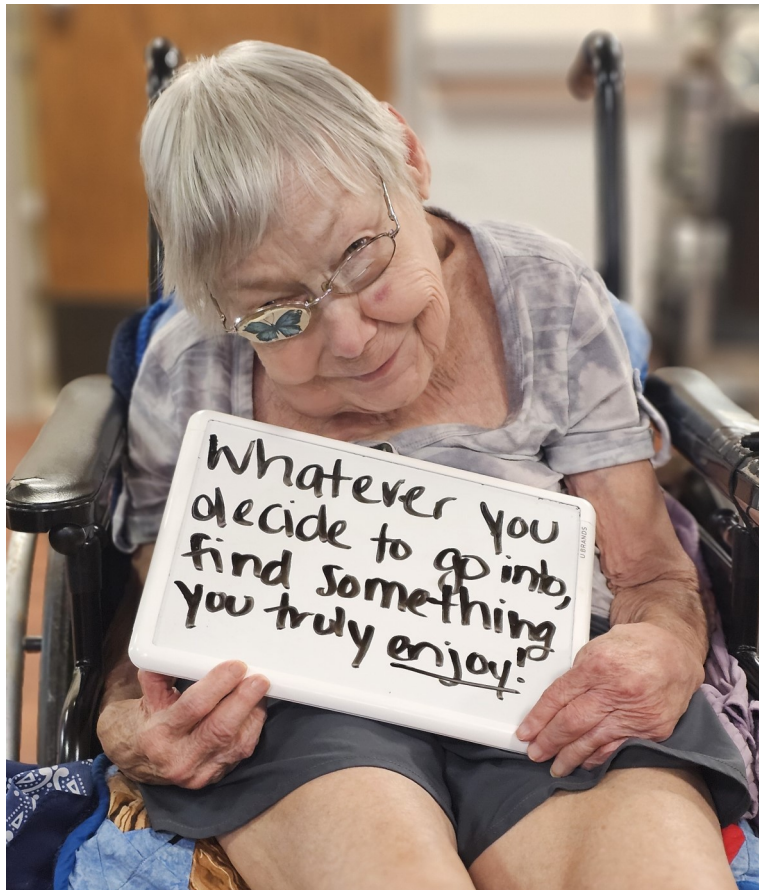 Whatever you
decide to go into,
find something
you truly enjoy!
U BRANDS